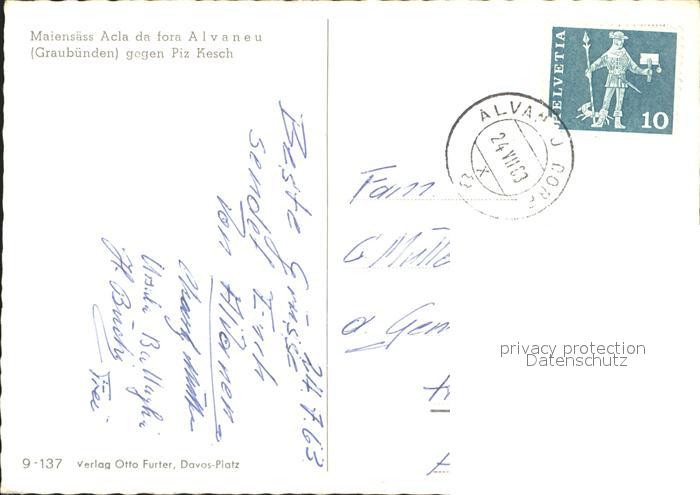 Maiensäss Acla da fora Alvaneu
(Graubünden) gegen Piz Kesch
24.7.63
Beste Grüsse
sendet Euch
von Alvaneu
H. Büchi
HELVETIA
10
ALVANEU DORF
24.VII.63
X
Fam
G. Mülle
a. Gem
privacy protection
Datenschutz
9-137 Verlag Otto Furter, Davos-Platz